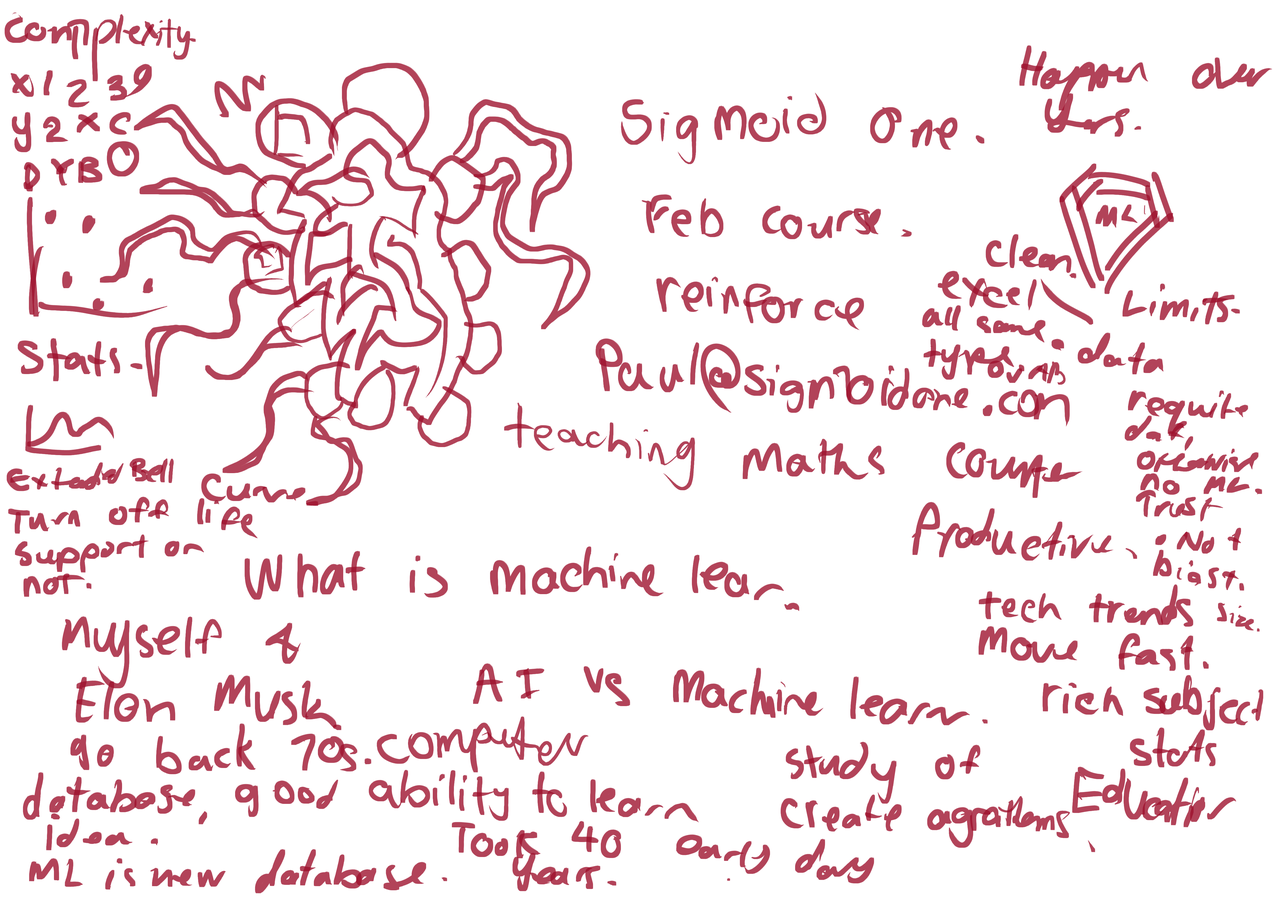 Complexity
x 1 2 39
y 2 x C
D Y B O
Stats.
Extaded Bell
Curve
Turn off life
support or
not.
Happen over
Years.
Sigmoid One.
Feb course.
reinforce
Paul@sigmoidone.com
teaching maths course
ML
clean
excel
all same
types
Limits.
data
require
data,
otherwise
no ML.
Trust
. Not
biast.
size.
Productive.
tech trends
move fast.
rich subject
stats
Education
What is machine lear
Myself &
Elon Musk
AI vs Machine learn.
go back 70s. computer
database, good ability to learn
idea.
Took 40
years.
ML is new database.
study of
create agrathems
early day